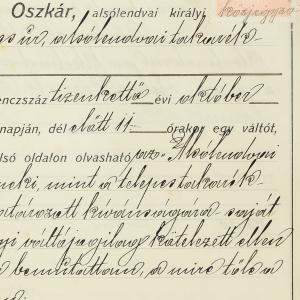 Oszkár, alsólendvai királyi közjegyző
úr, alsólendvai takarék-
enczszáz tizenkettő évi október
napján, dél előtt 11 órakor egy váltót,
lsó oldalon olvasható az „Alsólendvai
neki, mint a telepes takarék-
határozott kívánságára saját
váltójogilag kötelezett ellen
bemutattam, a mire tőle a